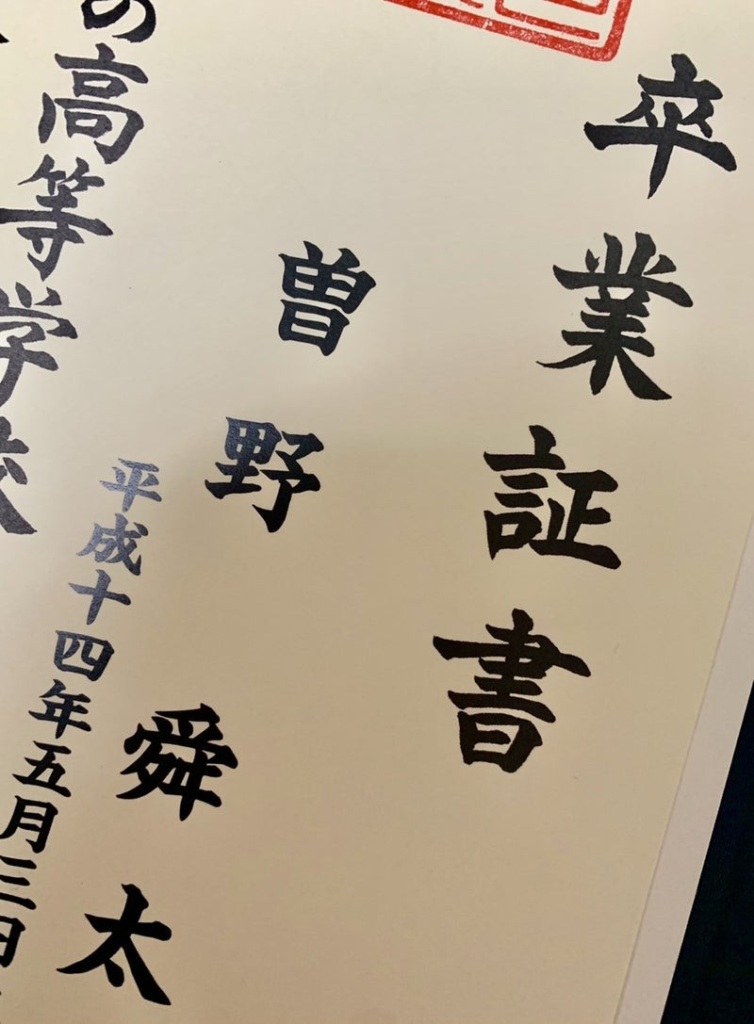 卒業証書
曽野 舜太
平成十四年五月三日
の高等学校